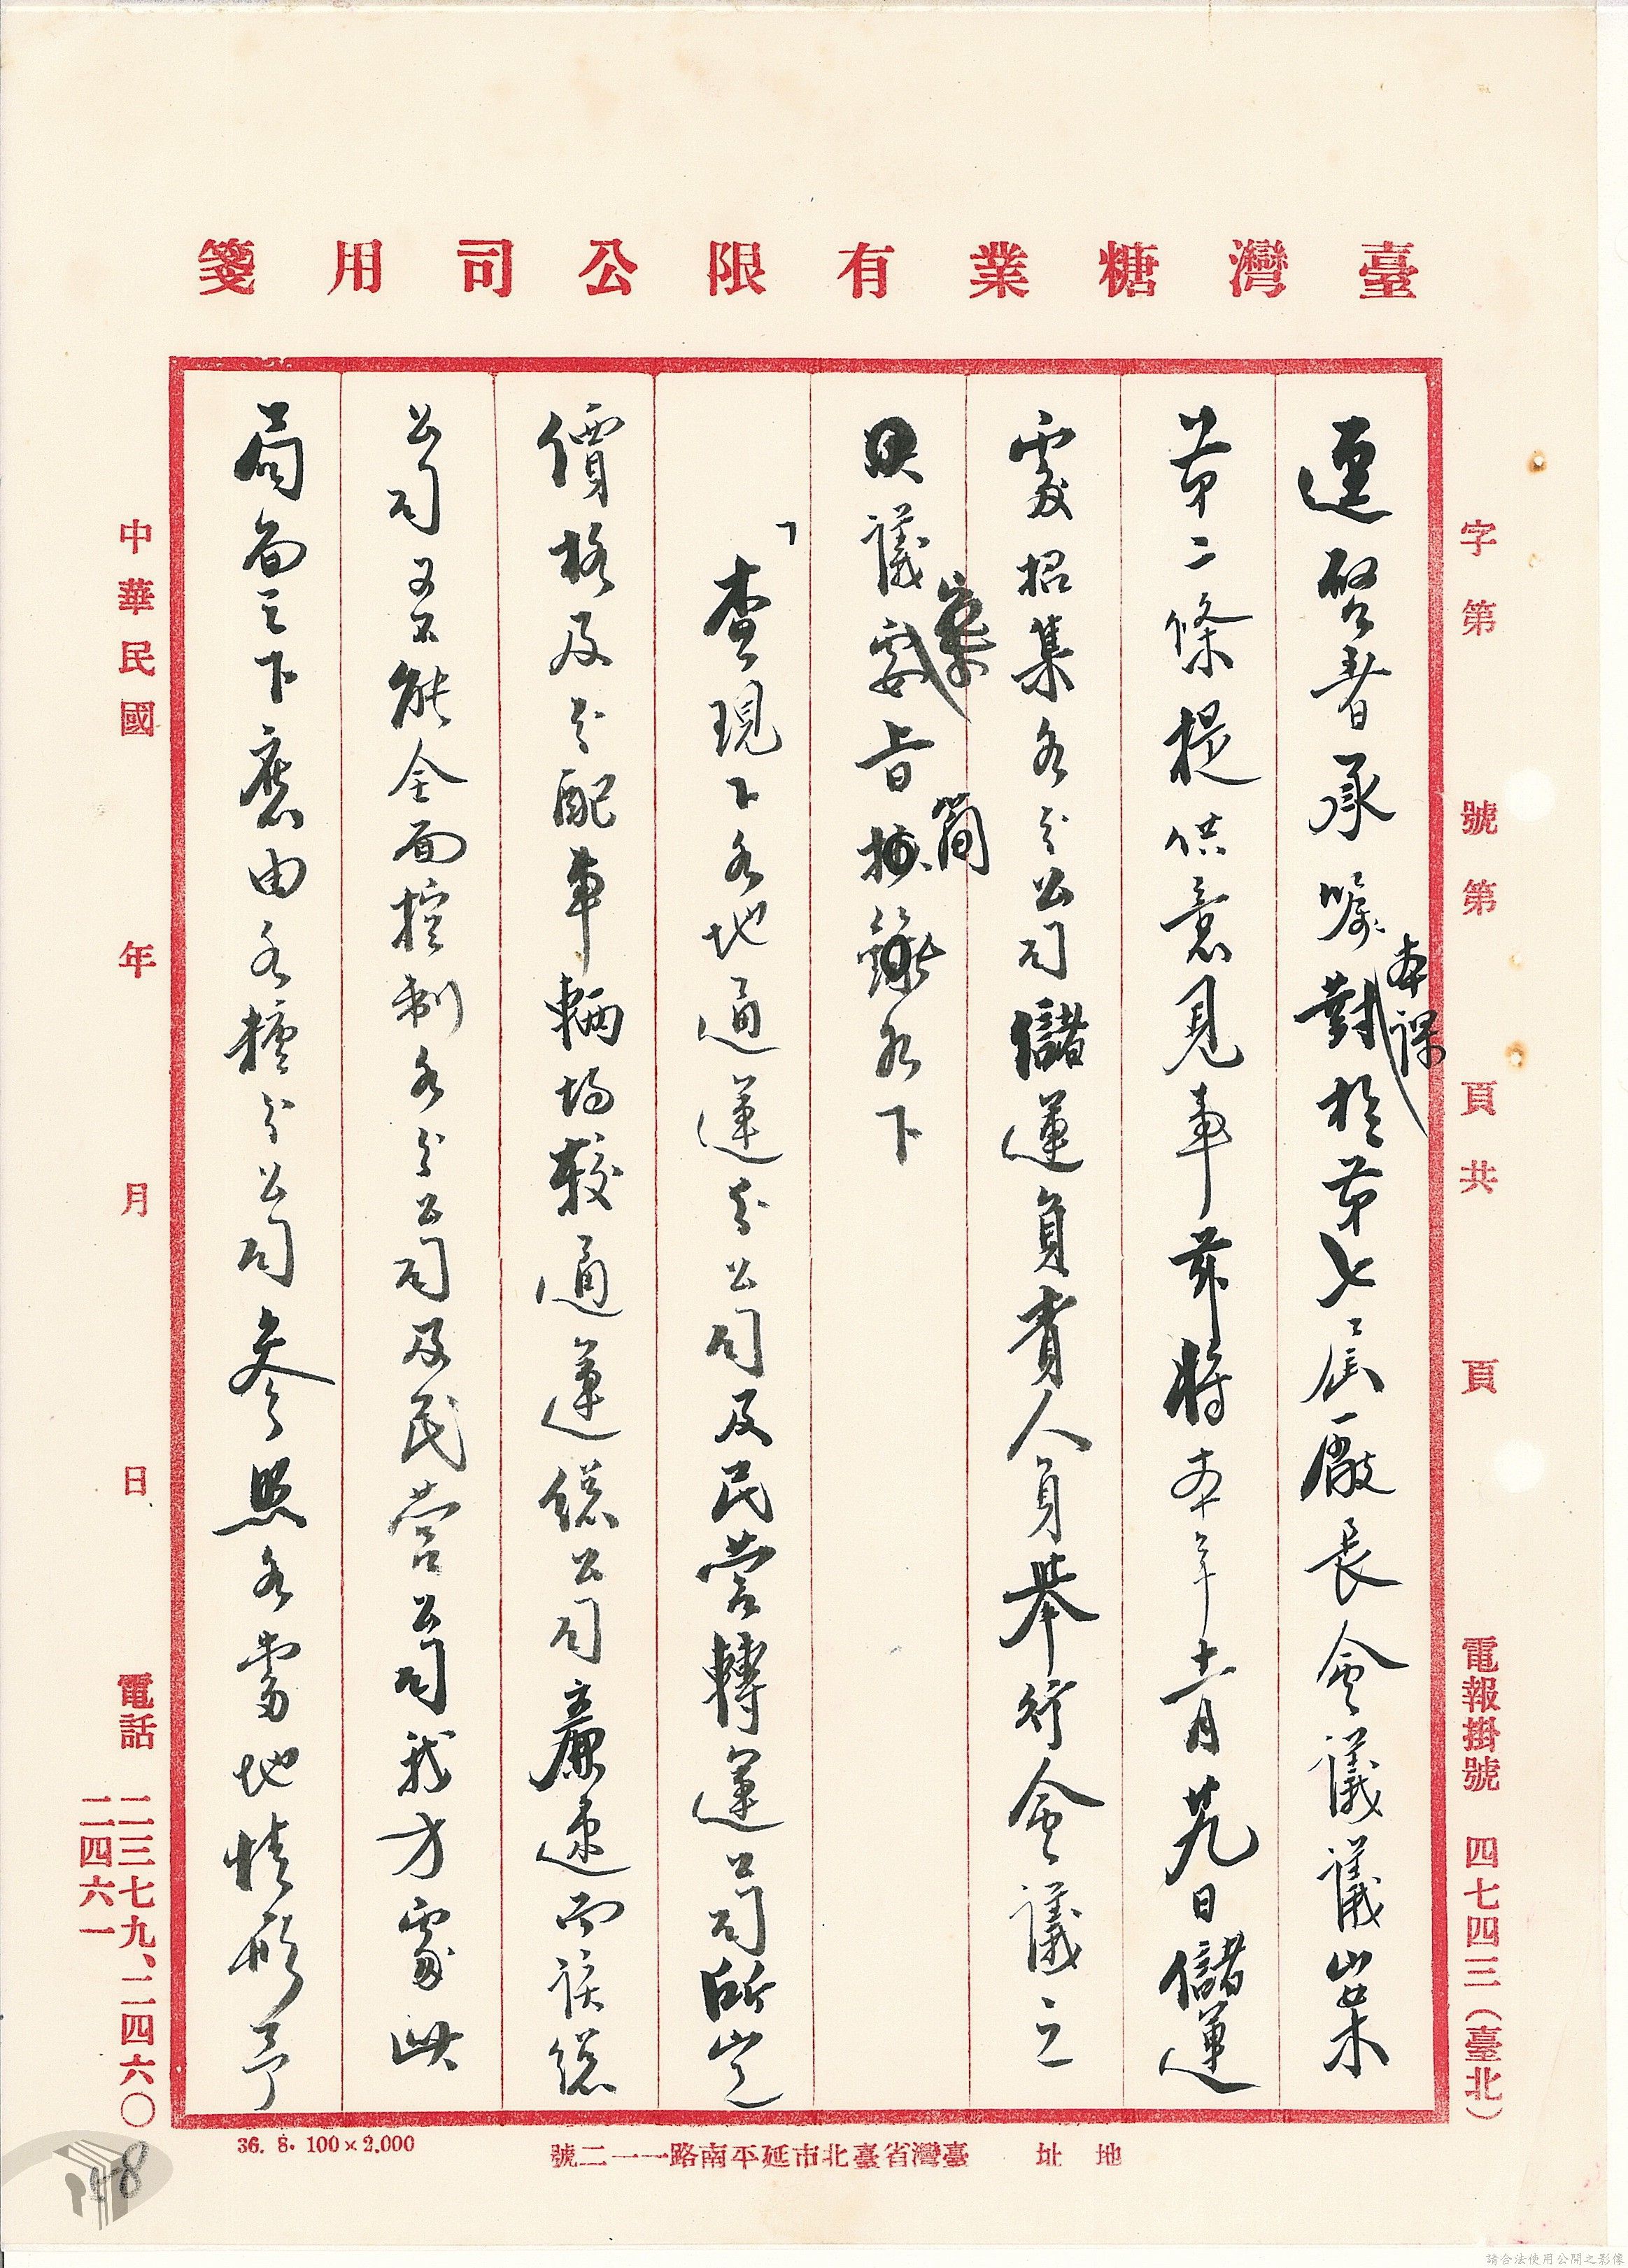 臺灣糖業有限公司用箋
字第　號第　頁共　頁
電報掛號　四七四三（臺北）
逕啓者承囑對於第七屆廠長會議議案
本課
第二條提供意見事茲將本年十一月廿九日儲運
處招集各分公司儲運負責人員舉行會議之
決議要旨摘錄如下
案
簡
「查現下各地通運分公司及民營轉運公司所定
價格及分配車輛均較通運總公司廉速而該總
公司又不能全面控制各分公司及民營公司我方處此
局面之下應由各糖分公司參照各當地情形予
中華民國　年　月　日
電話　二三七九、二四六〇
二四六一
36. 8. 100×2.000
地址　臺灣省臺北市延平南路一一二號
148
請合法使用公開之影像